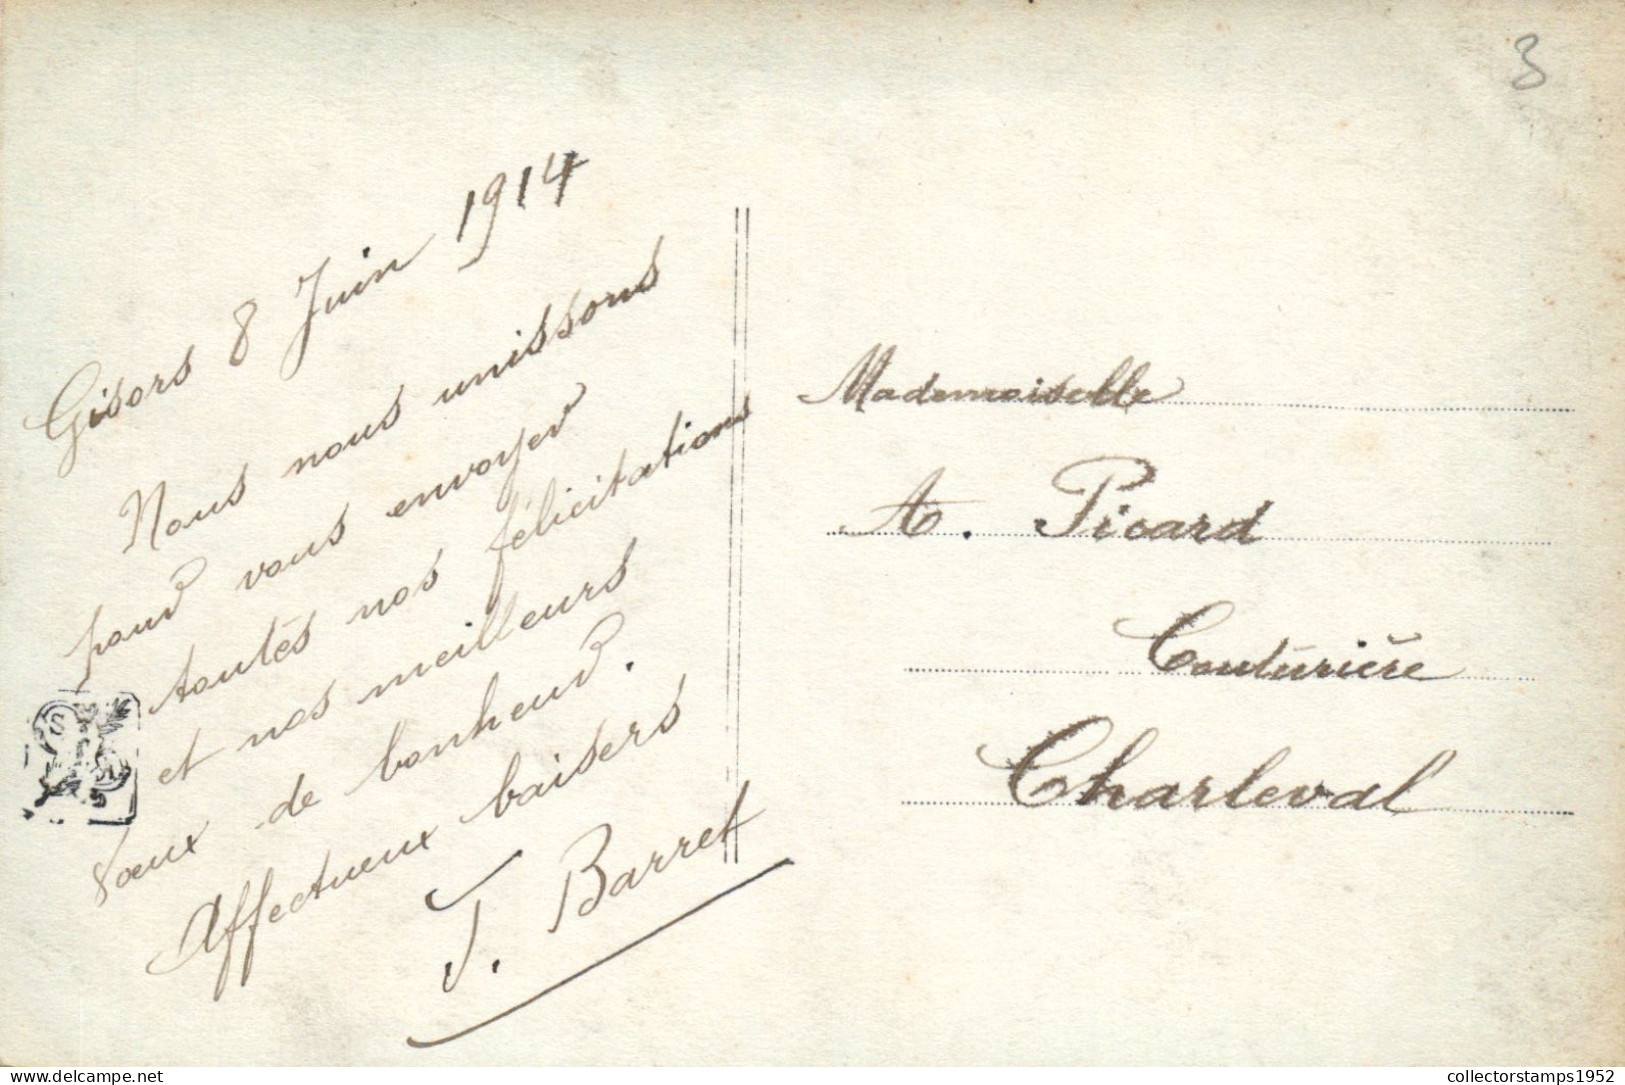 3
Gisors 8 Juin 1914
Nous nous unissons
pour vous envoyer
toutes nos félicitations
et nos meilleurs
vœux de bonheur.
Affectueux baisers
J. Barret
Mademoiselle
A. Picard
Couturière
Charleval
delcampe.net
collectorstamps1952